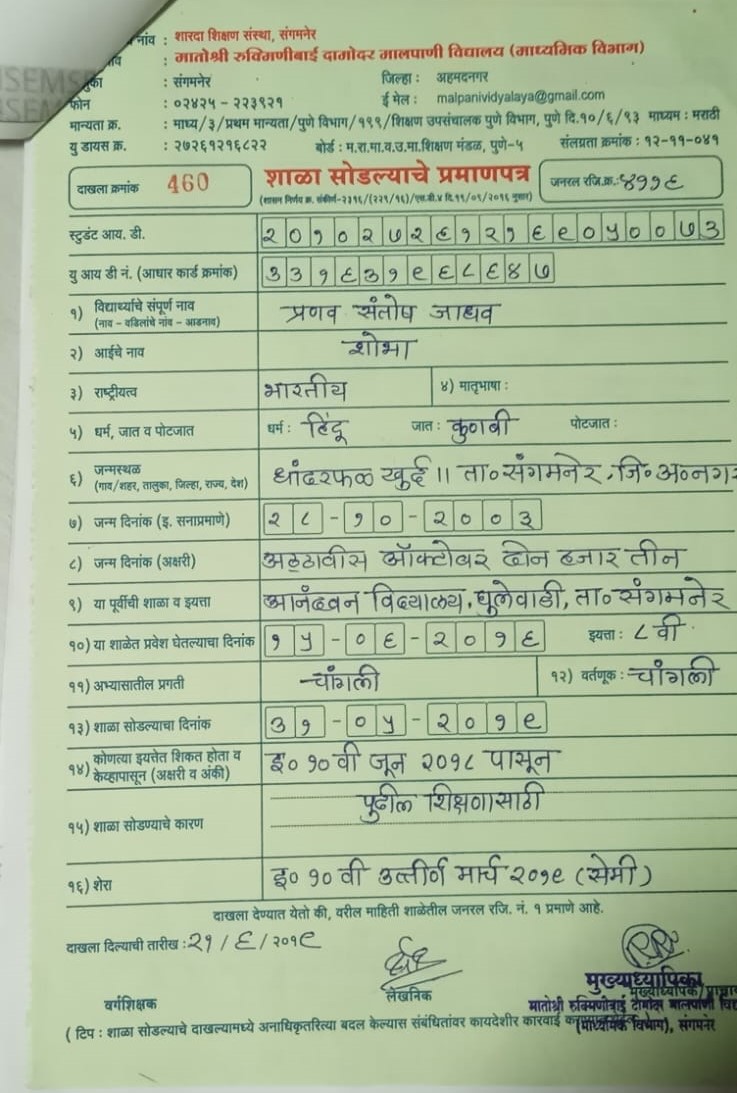 नांव : शारदा शिक्षण संस्था, संगमनेर
: मातोश्री रुक्मिणीबाई दामोदर मालपाणी विद्यालय (माध्यमिक विभाग)
: संगमनेर जिल्हा : अहमदनगर
फोन : ०२४२५ - २२३९२१ ई मेल : malpanividyalaya@gmail.com
मान्यता क्र. : माध्य/३/प्रथम मान्यता/पुणे विभाग/१९९/शिक्षण उपसंचालक पुणे विभाग, पुणे दि.१०/६/९३ माध्यम : मराठी
यु डायस क्र. : २७२६१२१६८२२ बोर्ड : म.रा.मा.व.उ.मा.शिक्षण मंडळ, पुणे-५ संलग्रता क्रमांक : १२-११-०४१
दाखला क्रमांक 460 शाळा सोडल्याचे प्रमाणपत्र जनरल रजि.क्र.: ४११६
स्टुडंट आय. डी. २०१०२७२६१२१६६९०५००७३
यु आय डी नं. (आधार कार्ड क्रमांक) ३३१६३१९६८६४७
१) विद्यार्थ्याचे संपूर्ण नाव प्रणव संतोष जाधव
(नाव - वडिलांचे नांव - आडनाव)
२) आईचे नाव शोभा
३) राष्ट्रीयत्व भारतीय ४) मातृभाषा :
५) धर्म, जात व पोटजात धर्म : हिंदू जात : कुणबी पोटजात :
६) जन्मस्थळ धांदरफळ खुर्द ॥ ता॰संगमनेर, जि॰अ॰नगर
(गाव/शहर, तालुका, जिल्हा, राज्य, देश)
७) जन्म दिनांक (इ. सनाप्रमाणे) २८-१०-२००३
८) जन्म दिनांक (अक्षरी) अठ्ठावीस ऑक्टोबर दोन हजार तीन
९) या पूर्वीची शाळा व इयत्ता आनंदवन विद्यालय, घुलेवाडी, ता॰संगमनेर
१०) या शाळेत प्रवेश घेतल्याचा दिनांक १५-०६-२०१६ इयत्ता : ८ वी
११) अभ्यासातील प्रगती चांगली १२) वर्तणूक : चांगली
१३) शाळा सोडल्याचा दिनांक ३१-०५-२०१९
१४) कोणत्या इयत्तेत शिकत होता व इ॰ १० वी जून २०१८ पासून
केव्हापासून (अक्षरी व अंकी)
१५) शाळा सोडण्याचे कारण पुढील शिक्षणासाठी
१६) शेरा इ॰ १० वी उत्तीर्ण मार्च २०१९ (सेमी)
दाखला देण्यात येतो की, वरील माहिती शाळेतील जनरल रजि. नं. १ प्रमाणे आहे.
दाखला दिल्याची तारीख : २१/६/२०१९
मुख्याध्यापिका
वर्गशिक्षक लेखनिक मुख्याध्यापक/
मातोश्री रुक्मिणीबाई दामोदर मालपाणी
(माध्यमिक विभाग), संगमनेर
( टिप : शाळा सोडल्याचे दाखल्यामध्ये अनाधिकृतरित्या बदल केल्यास संबंधितांवर कायदेशीर कारवाई